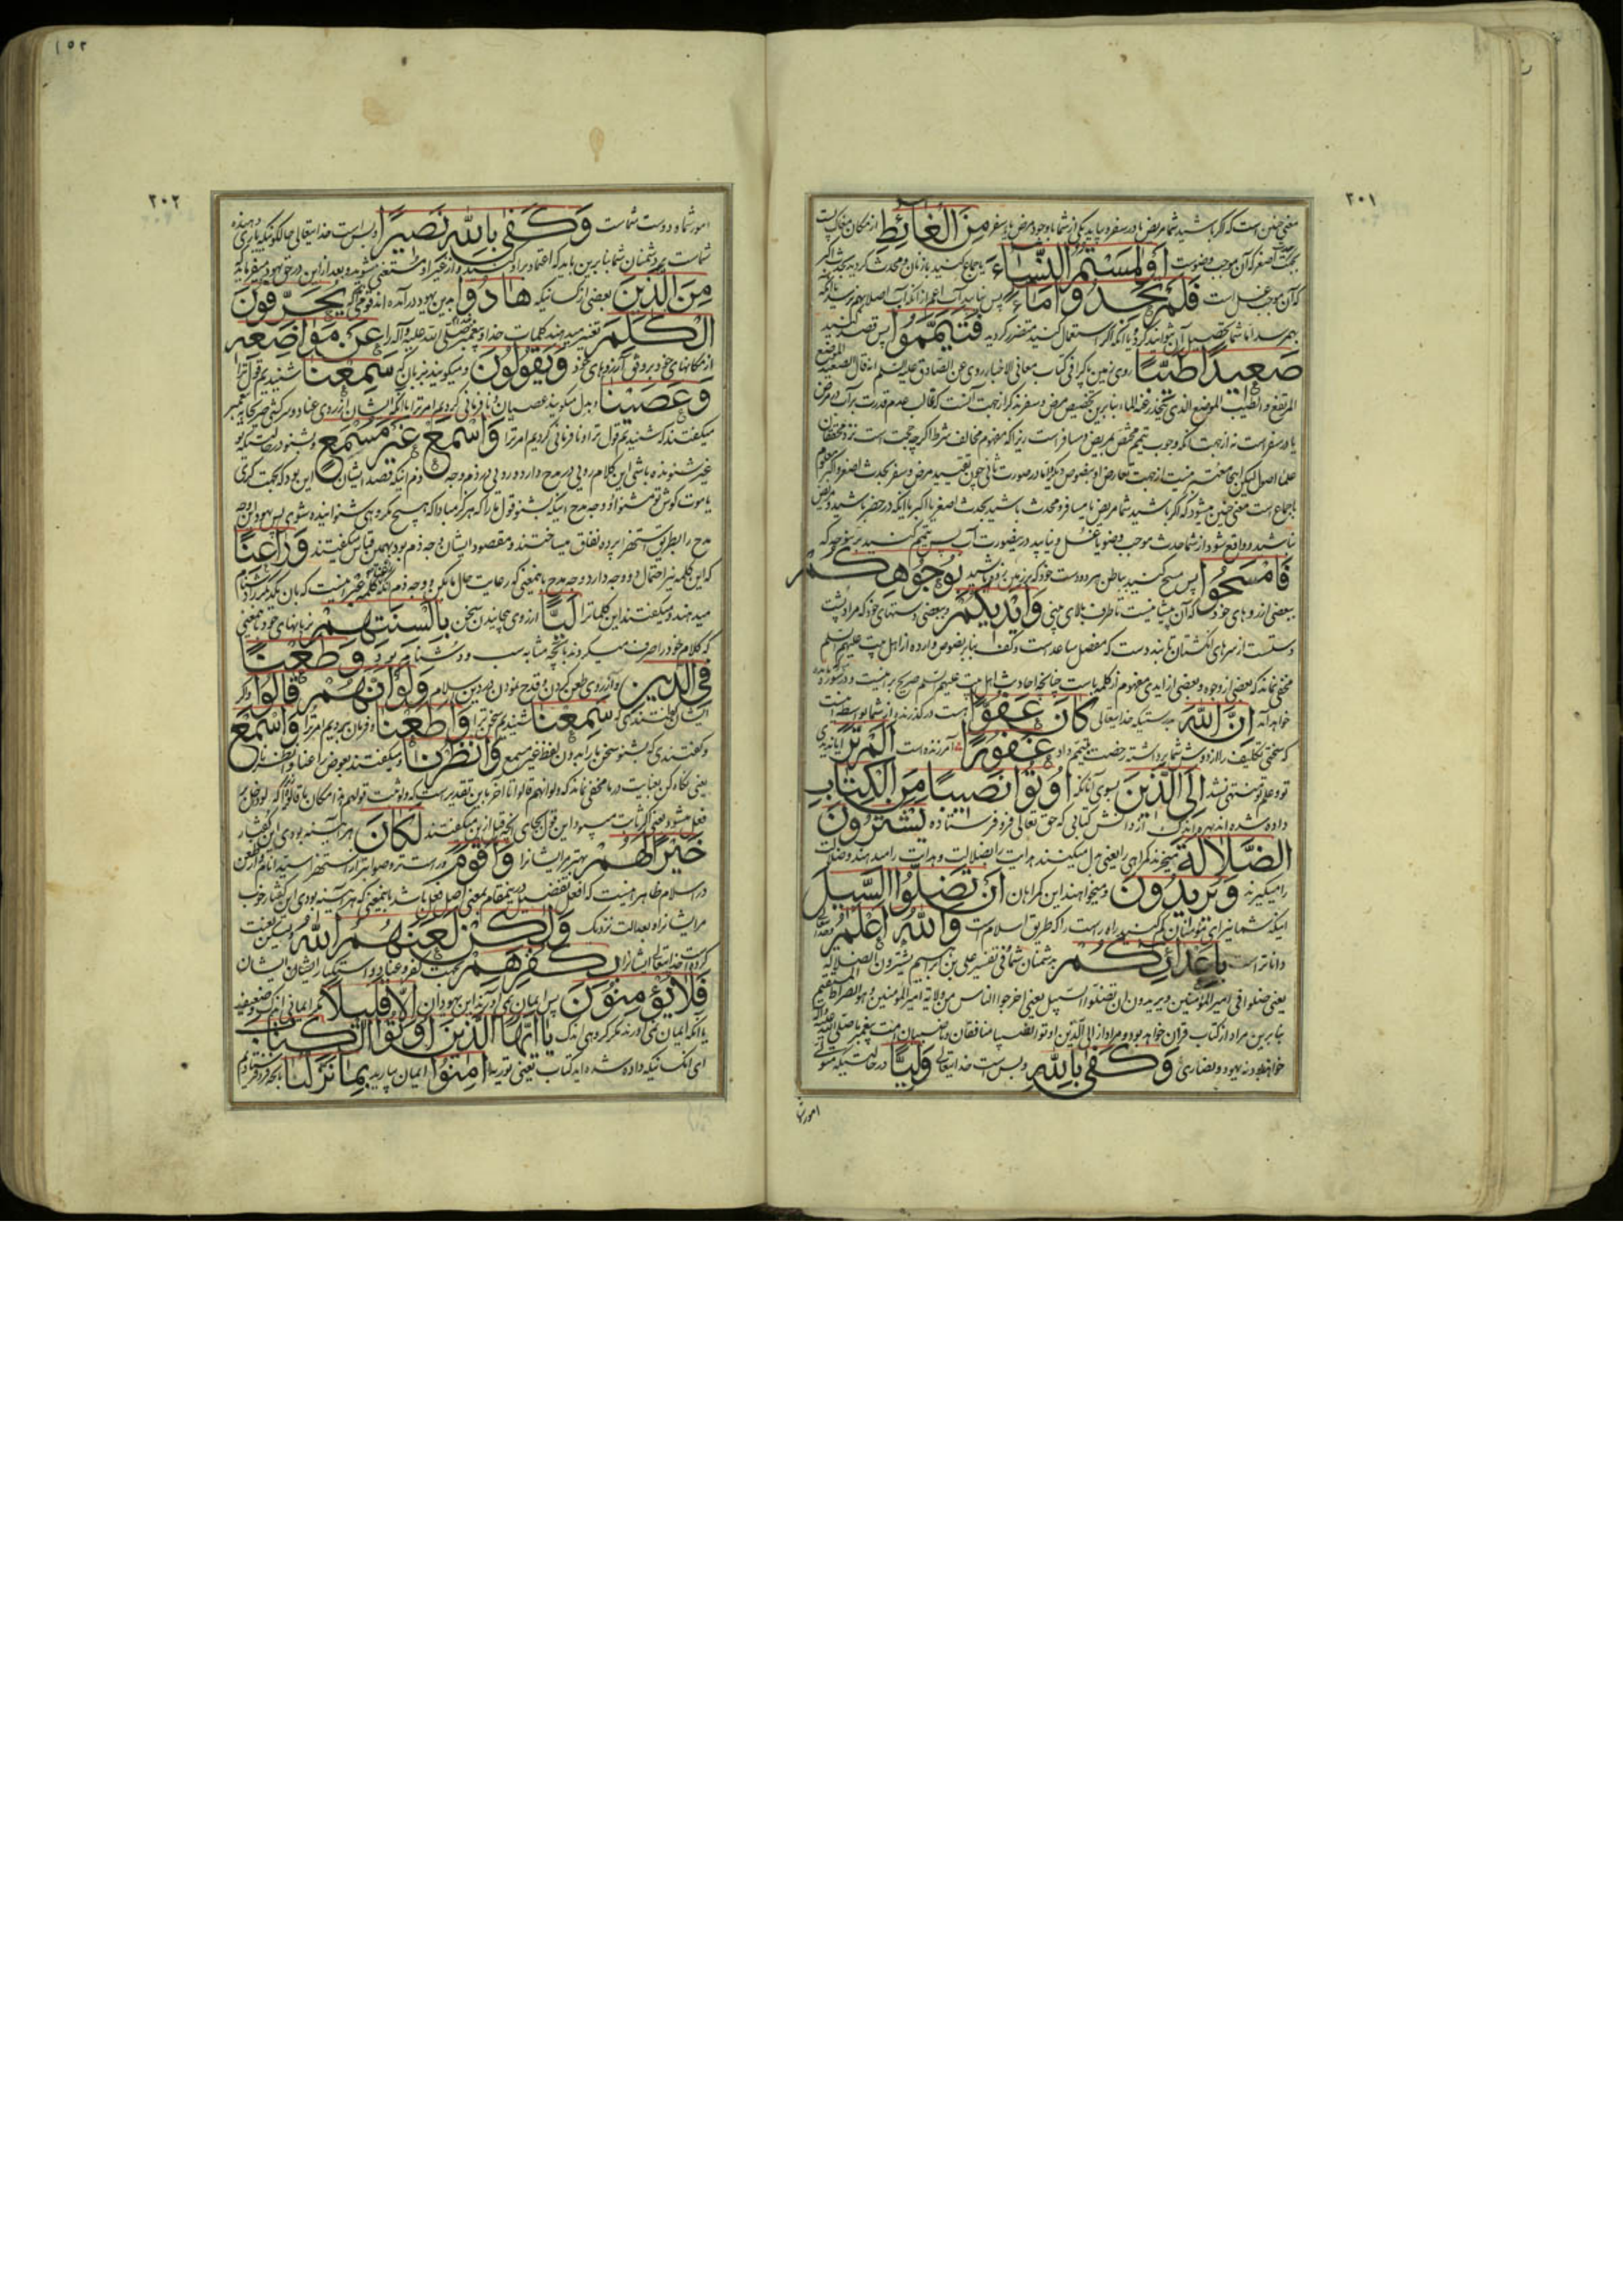 ٢٠١
معنی چنین است که اگر باشید شما مریض یا در سفر و بیاید یکی از شما با وجود مرض یا سفر مِنَ الْغَائِطِ از مکان
اصغر که آن موجب وضوست أَوْ لَمَسْتُمُ النِّسَاءَ یا جماع کنید با زنان و محدث گردید بحدث اکبر
که آن موجب غسل است فَلَمْ تَجِدُوا مَاءً پس نیابید آب اعم از آنکه آب اصلا بهم نرسد یا آنکه
بهم رسد اما شما تحصیل آن نتوانید کرد و یا آنکه اگر استعمال کنید متضرر گردید فَتَيَمَّمُوا پس قصد کنید
صَعِيدًا طَيِّبًا روی زمین پاک را فی کتاب معانی الاخبار روی عن الصادق علیه السلم انه قال الصعید الموضع
المرتفع و الطیب الموضع الذی ینحدر عنه الماء بنابرین تخصیص مرض و سفر بذکر از جهت آنست که غالب عدم قدرت بر آب در مرض
یا در سفر است نه از جهت آنکه وجوب تیمم مختص بمریض و مسافر است زیرا که مفهوم مخالف شرط اگر چه حجت است نزد محققان
علماء اصول لیکن اینجا معتبر نیست از جهت تعارض او بنصوص دیگر و اما در صورت ثانی چون تقیید مرض و سفر بحدث اصغر و اکبر معلوم
باجماع است معنی چنین میشود که اگر باشید شما مریض یا مسافر و محدث باشید بحدث اصغر یا اکبر یا آنکه در حضر باشید و مریض
نباشید و واقع شود از شما حدث موجب وضو یا غسل و نیابید در ینصورت آب پس تیمم کنید برینوجه که
فَامْسَحُوا پس مسح کنید بباطن هر دو دست خود که بر زمین زده باشید بِوُجُوهِكُمْ
ببعضی از روهای خود که آن پیشانیست تا طرف بالای بینی وَأَيْدِيكُمْ و ببعضی دستهای خود که مراد پشت
دستست از سرهای انگشتان تا بند دست که مفصل ساعد است و کف بنابر نصوص وارده از اهل بیت علیهم السلم
مخفی نماند که بعضی از وجوه و بعضی از ایدی مفهوم از کلمه باست چنانچه احادیث اهل بیت علیهم السلم صریح بر اینست و در سوره مائده
خواهد آمد إِنَّ اللهَ بدرستیکه خدایتعالی كَانَ عَفُوًّا هست در گذرنده از شما بواسطه اینست
که سختی تکلیف را از دوش شما برداشته رخصت بتیمم داد غَفُورًا آمرزنده است أَلَمْ تَرَ آیا ندیدی
تو و علم تو منتهی نشد إِلَى الَّذِينَ بسوی آنانکه أُوتُوا نَصِيبًا مِنَ الْكِتَابِ
داده شده اند بهره اندک از دانش کتابی که حق تعالی فرو فرستاده يَشْتَرُونَ
الضَّلَالَةَ میخرند گمراهی را یعنی بدل میکنند هدایت را بضلالت و هدایت را میدهند و ضلالت
را میگیرند وَيُرِيدُونَ و میخواهند این گمراهان أَنْ تَضِلُّوا السَّبِيلَ
اینکه شما نیز ای مؤمنان گم کنید راه راست را که طریق اسلام است وَاللهُ أَعْلَمُ و خدایتعالی
داناتر است بِأَعْدَائِكُمْ بدشمنان شما فی تفسیر علی بن ابراهیم یشترون الضلالة
یعنی ضلوا فی امیر المؤمنین و یریدون ان تضلوا السبیل یعنی اخرجوا الناس من ولایة امیر المؤمنین و هو الصراط المستقیم
بنابرین مراد از کتاب قرآن خواهد بود و مراد از الی الذین اوتوا نصیبا منافقان و ناصبیان امت پیغمبر صلی الله علیه و آله
خواهند بود نه یهود و نصاری وَكَفَى بِاللهِ و بس است خدایتعالی وَلِيًّا در حالتیکه متولی
امور شما
١٥٢
٢٠٢
امور شما و دوست شماست وَكَفَى بِاللهِ نَصِيرًا و بس است خدایتعالی حالکونیکه یاری دهنده
شماست بر دشمنان شما بنابرین باید که اعتماد بر او کنید و از غیر او مستغنی شوید و بعد از این در حق یهود میفرماید که
مِنَ الَّذِينَ بعضی از کسانیکه هَادُوا بدین یهود در آمده اند قومی اند که يُحَرِّفُونَ
الْكَلِمَ تغییر میدهند کلمات خدا و پیغمبر صلی الله علیه و آله را عَنْ مَوَاضِعِهِ
از مکانهای خود بر وفق آرزوهای خود وَيَقُولُونَ و میگویند بزبان که سَمِعْنَا شنیدیم قول ترا
وَعَصَيْنَا و بدل میگویند عصیان و نافرمانی کردیم امر ترا یا آنکه ایشان از روی عناد و سرکشی صریحا به پیغمبر
میگفتند که شنیدیم قول ترا و نافرمانی کردیم امر ترا وَاسْمَعْ غَيْرَ مُسْمَعٍ و بشنو در حالتیکه تو
غیر شنونده باشی این کلام رویی در مدح دارد و رویی در ذم وجه ذم اینکه قصد ایشان این بود که بجهت کری
یا موت گوش تو مشنواد و وجه مدح اینکه بشنو قول ما را که هرگز مبادا که هیچ مکروهی شنوانیده شوی پس یهود این وجه
مدح را بطریق استهزا پرده نفاق میساختند و مقصود ایشان وجه ذم بود بهمین قیاس میگفتند وَرَاعِنَا
که این کلمه نیز احتمال دو وجه دارد وجه مدح باینمعنی که رعایت حال ما بکن و وجه ذم آنکه کلمه عبرانیست که بآن یکدیگر را دشنام
میدهند و میگفتند این کلمات را لَيًّا از روی پیچانیدن سخن بِأَلْسِنَتِهِمْ بزبانهای خود باینمعنی
که کلام خود را صرف میکردند بآنچه مشابه سب و دشنام بود وَطَعْنًا
فِي الدِّينِ و از روی طعن کردن و قدح نمودن در دین اسلام وَلَوْ أَنَّهُمْ قَالُوا و اگر
ایشان گفتندی که سَمِعْنَا شنیدیم سخن ترا وَأَطَعْنَا و فرمان بردیم امر ترا وَاسْمَعْ
و گفتندی که بشنو سخن ما را بدون لفظ غیر مسمع وَانْظُرْنَا و میگفتند بعوض راعنا و انظرنا
یعنی نگاه کن بعنایت در ما مخفی نماند که و لو انهم قالوا تا آخر باین تقدیر است که و لو ثبت قولهم هذا مکان ما قالوا
فعل میشود یعنی اگر ثابت میبود این قول بجای آنچه قبل از این میگفتند لَكَانَ هر آینه بودی این گفتار
خَيْرًا لَهُمْ بهتر مر ایشانرا وَأَقْوَمَ و راست تر و صوابتر از استهزا
در اسلام ظاهر اینست که افعل تفضیل در ینمقام بمعنی اصل فعل باشد باینمعنی که هر آینه بودی این گفتار خوب
مر ایشانرا و بعدالت نزدیک وَلَكِنْ لَعَنَهُمُ اللهُ و لیکن لعنت
کرده است خدایتعالی ایشانرا بِكُفْرِهِمْ بجهت کفر و عناد و استکبار ایشان ایشان
فَلَا يُؤْمِنُونَ پس ایمان نمی آورند این یهودان إِلَّا قَلِيلًا مگر ایمانی اندک و ضعیف
یا آنکه ایمان نمی آورند مگر گروهی اندک يَا أَيُّهَا الَّذِينَ أُوتُوا الْكِتَابَ
ای آنکسانیکه داده شده اید کتاب یعنی توریة آمِنُوا ایمان بیارید بِمَا نَزَّلْنَا بآنچه فرو فرستادیم